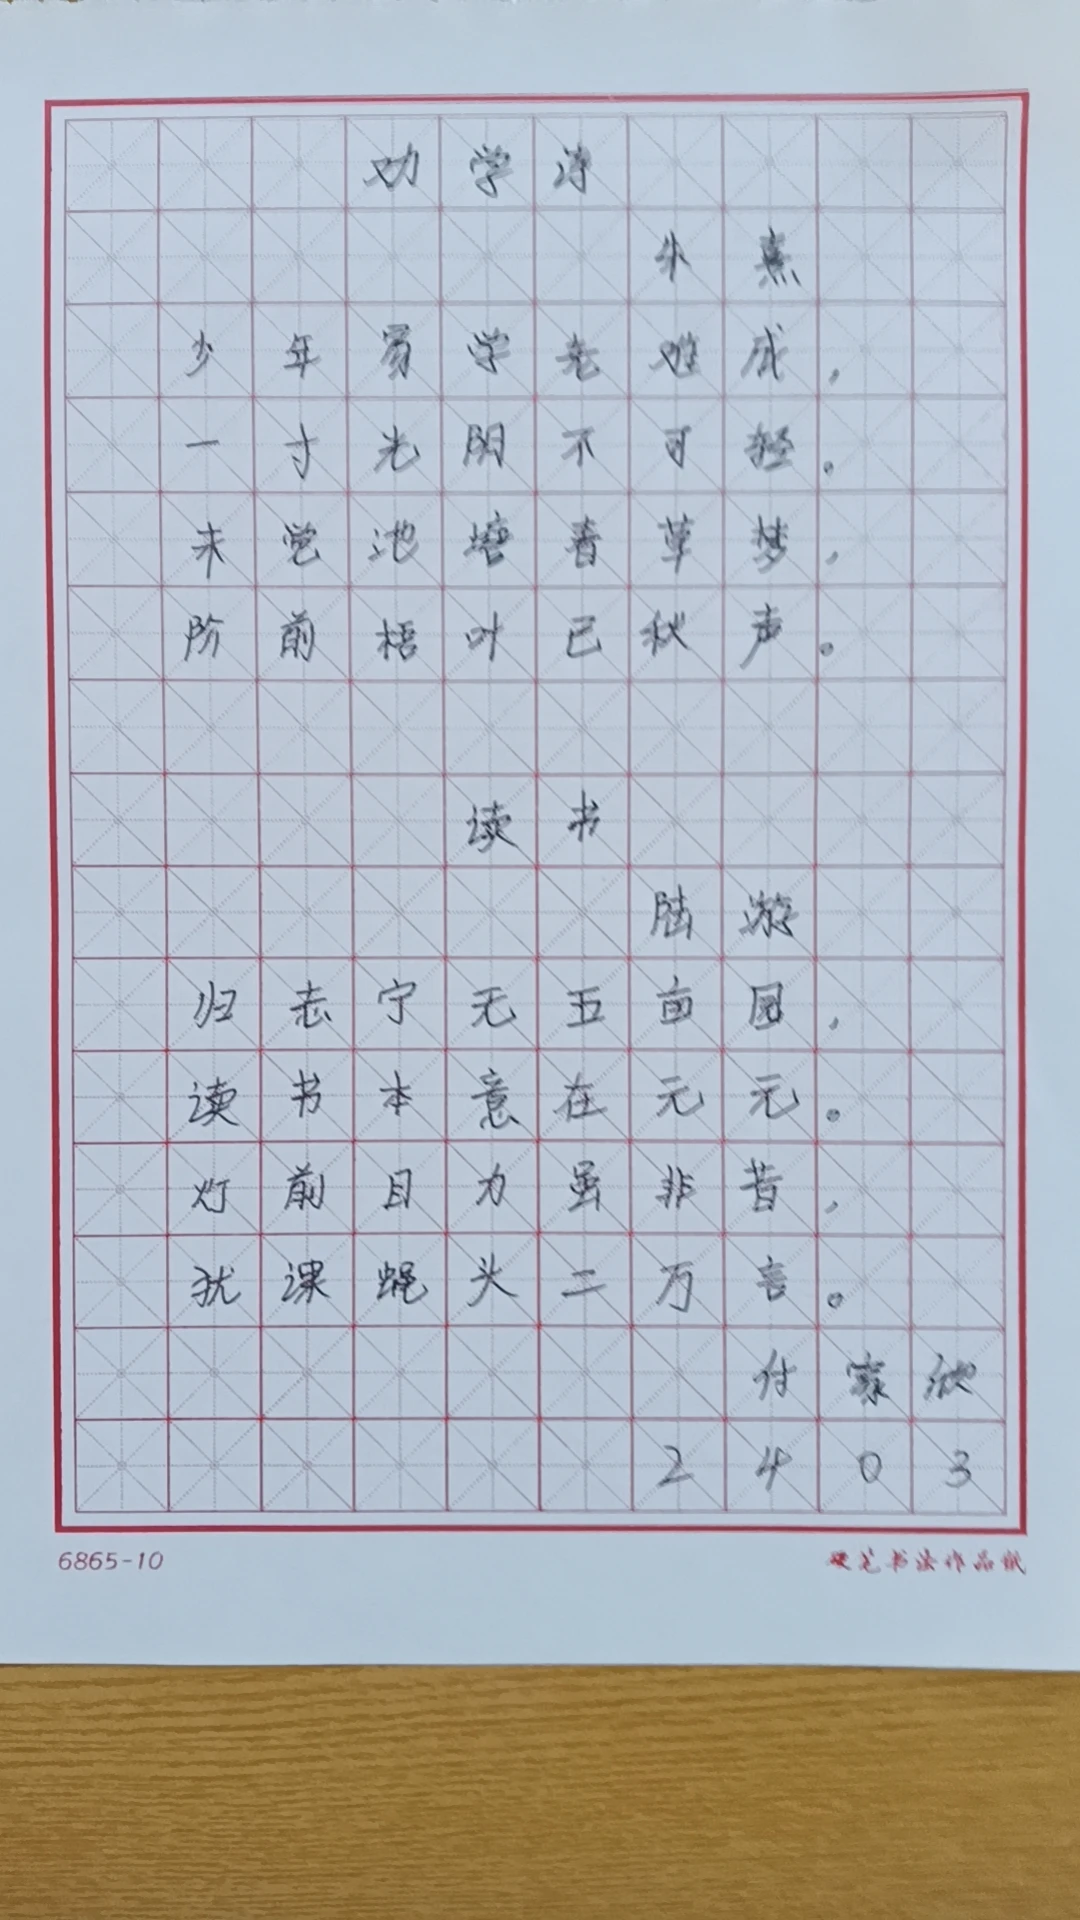 劝学诗
朱熹
少年易学老难成，
一寸光阴不可轻。
未觉池塘春草梦，
阶前梧叶已秋声。
读书
陆游
归志宁无五亩园，
读书本意在元元。
灯前目力虽非昔，
犹课蝇头二万言。
付家欣
2403
6865-10
硬笔书法作品纸